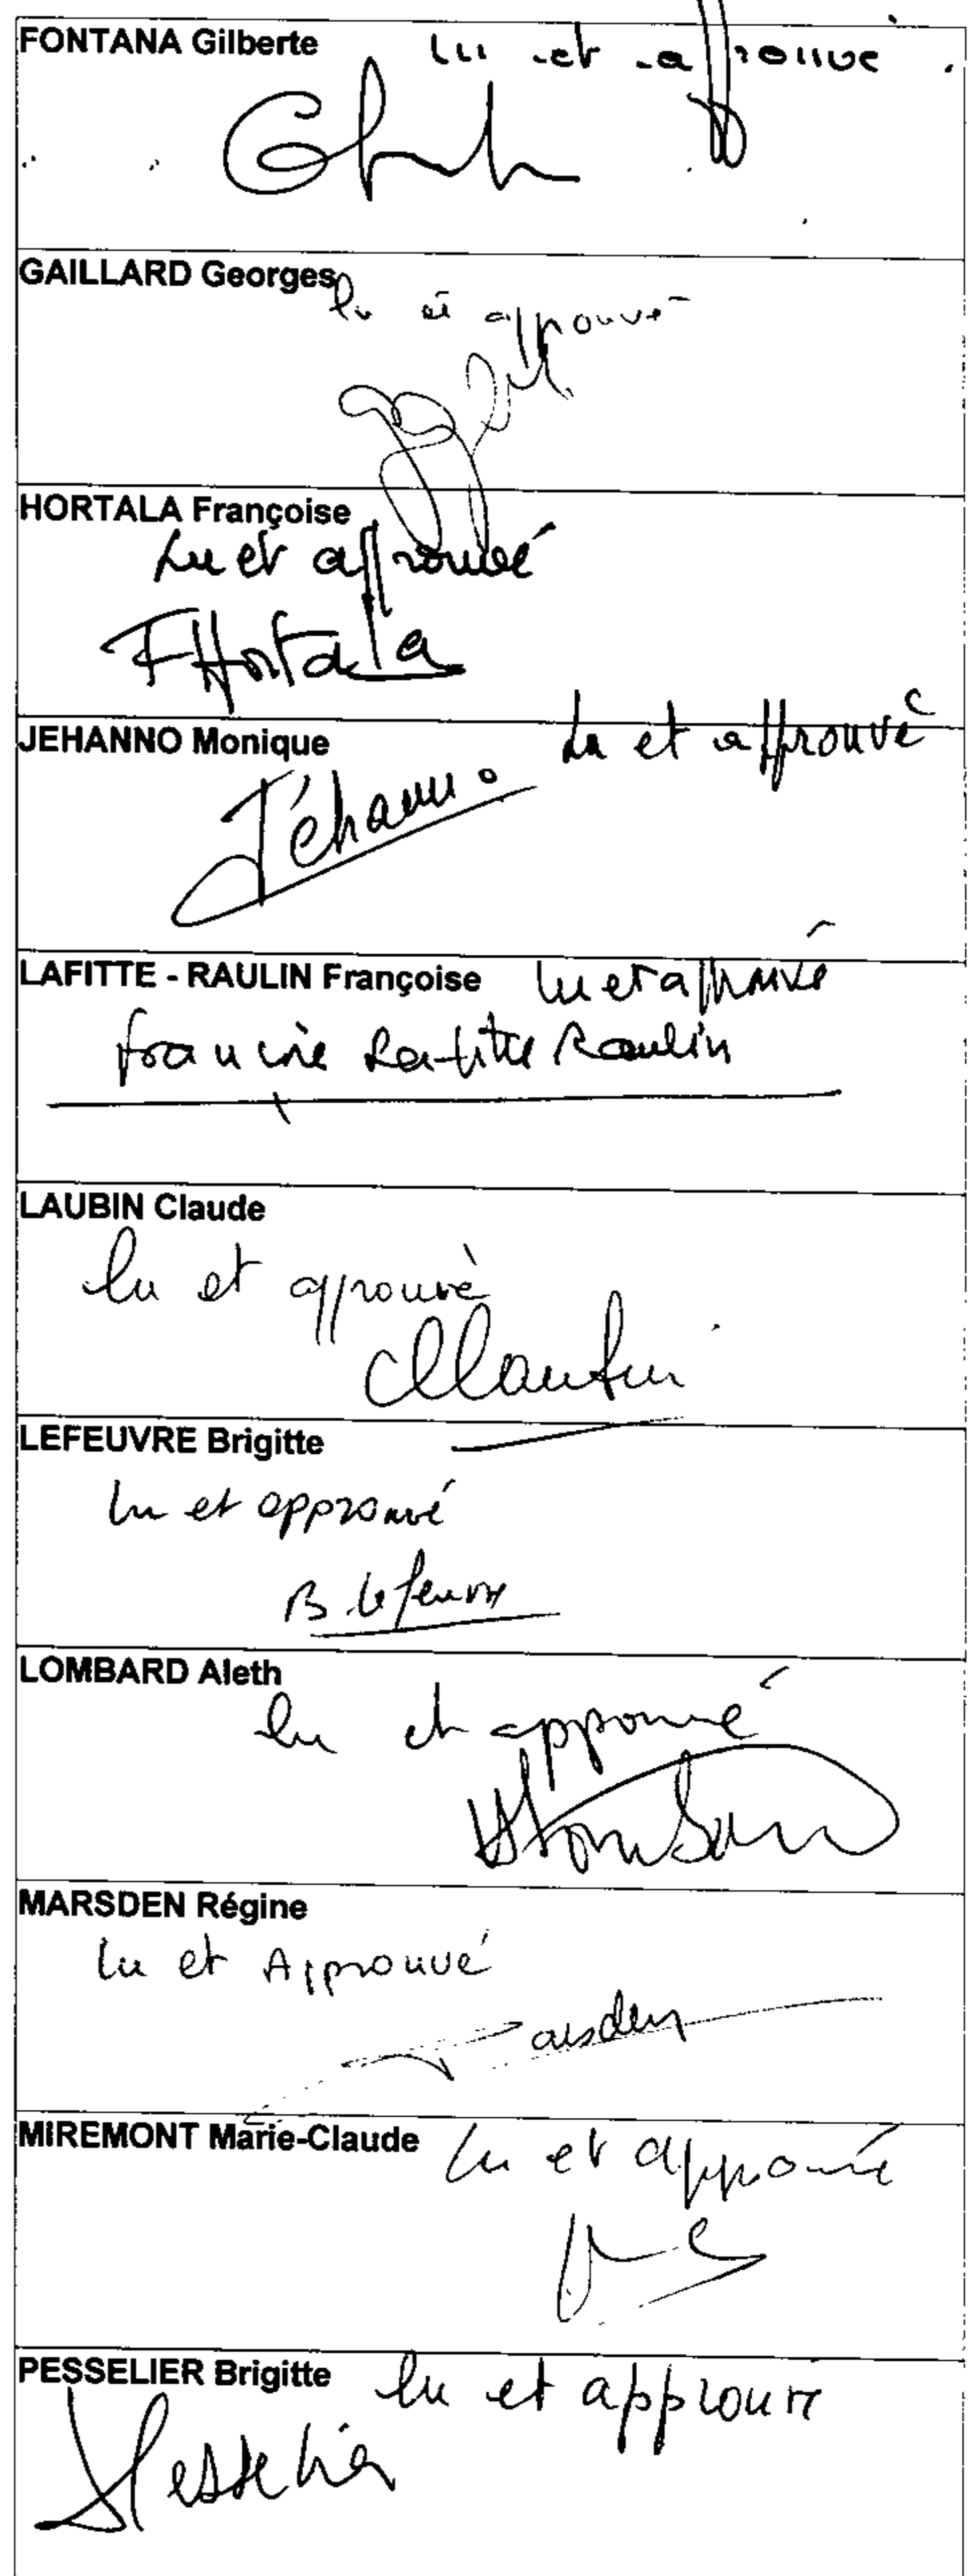 FONTANA Gilberte lu et approuvé
GAILLARD Georges
lu et approuvé
HORTALA Françoise
Lu et approuvé
F Hortala
JEHANNO Monique Lu et approuvé
Jéhanno
LAFITTE - RAULIN Françoise lu et approuvé
Lafitte Raulin
LAUBIN Claude
lu et approuvè
LEFEUVRE Brigitte
lu et approuvé
B Lefeuvre
LOMBARD Aleth
lu et approuvé
MARSDEN Régine
lu et Approuvé
Marsden
MIREMONT Marie-Claude lu et approuvé
PESSELIER Brigitte lu et approuvé
Pesselier